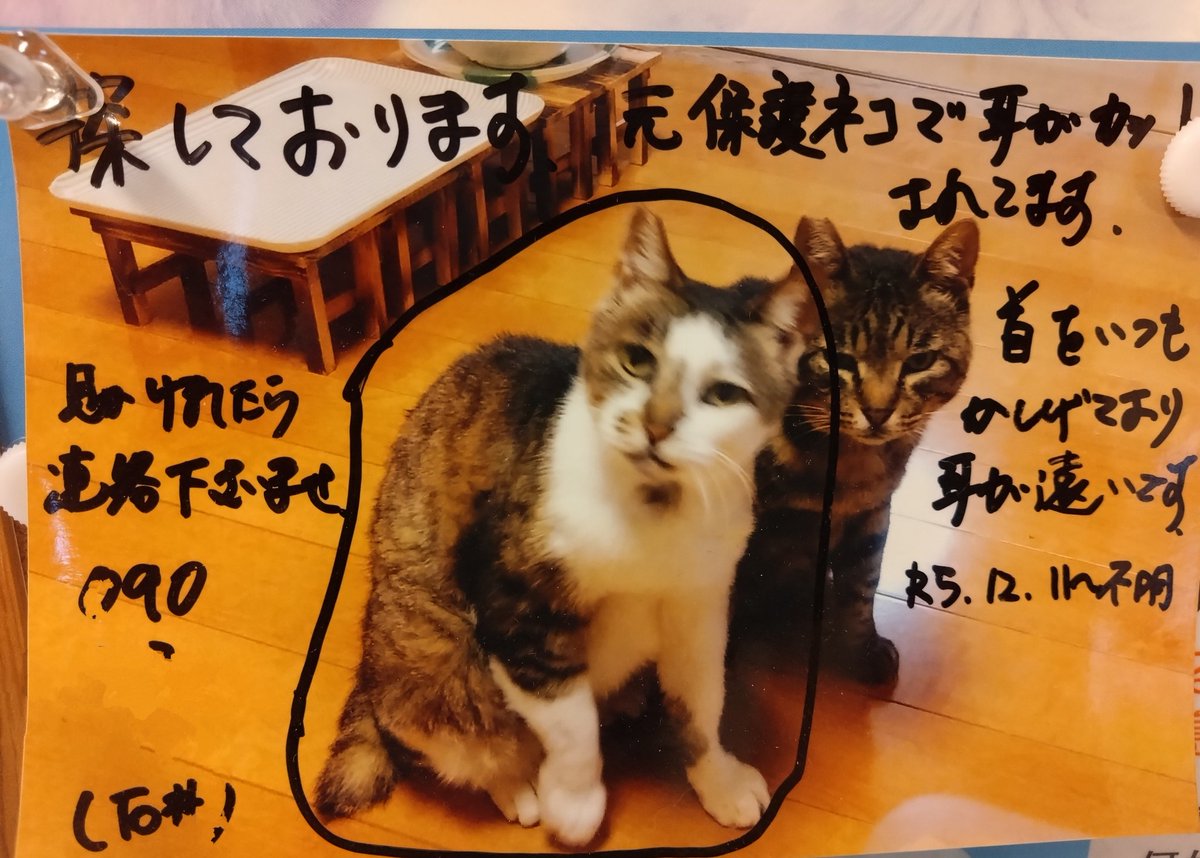 探しております、元保護ネコで耳がカット
されてます.
首をいつも
かしげており
耳が遠いです.
R5.12.11〜不明
見かけれたら
連絡下さいませ
090
-
(石井)